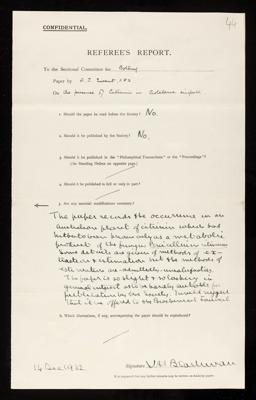 44
CONFIDENTIAL.
REFEREE'S REPORT.
To the Sectional Committee for Botany
Paper by A. J. Ewart, F.R.S.
On the presence of Citrinin in Crotalaria crispata
1. Should the paper be read before the Society? No.
2. Should it be published by the Society? No.
3. Should it be published in the "Philosophical Transactions" or the "Proceedings"?
(See Standing Orders on opposite page.)
4. Should it be published in full or only in part?
5. Are any essential modifications necessary?
The paper records the occurrence in an
Australian plant of citrinin which had
hitherto been known only as a metabolic
product of the fungus Penicillium citrinum
Some details are given of methods of ex-
traction & estimation but the methods of
estimation are admittedly unsatisfactory.
The paper is so slight & so lacking in
general interest as to be hardly suitable for
publication by the Society. I would suggest
that it be offered to the Biochemical Journal
6. Which illustrations, if any, accompanying the paper should be reproduced?
14 Dec 1932
Signature V H Blackman